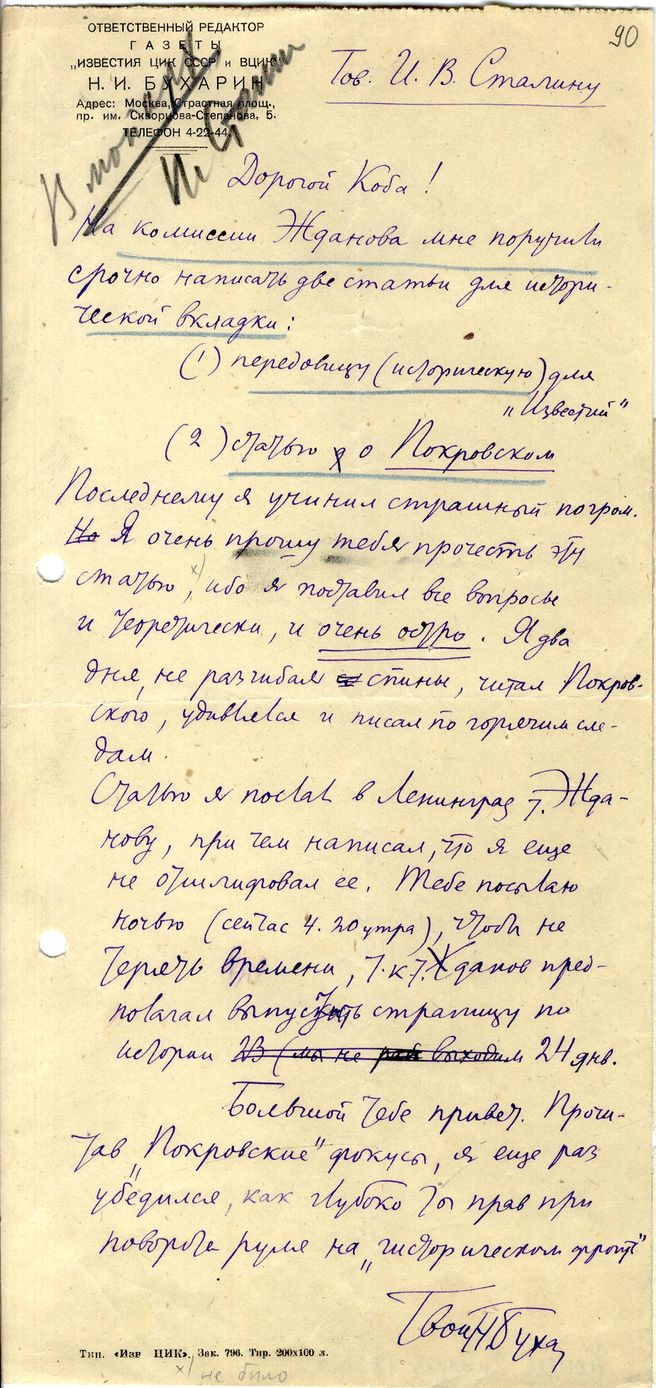 ОТВЕТСТВЕННЫЙ РЕДАКТОР
ГАЗЕТЫ
„ИЗВЕСТИЯ ЦИК СССР и ВЦИК“
Н. И. БУХАРИН
Адрес: Москва, Страстная площ.,
пр. им. Скворцова-Степанова, 5.
ТЕЛЕФОН 4-22-44.
90
Тов. И. В. Сталину
Дорогой Коба!
На комиссии Жданова мне поручили
срочно написать две статьи для истори-
ческой вкладки:
(1) передовицу (историческую) для
„Известий“
(2) статью о Покровском
Последнему я учинил страшный погром.
Но Я очень прошу тебя прочесть эту
статью x), ибо я поставил все вопросы
и теоретически, и очень остро. Я два
дня, не разгибая спины, читал Покров-
ского, удивлялся и писал по горячим сле-
дам.
Статью я послал в Ленинград т. Жда-
нову, при чем написал, что я еще
не отшлифовал ее. Тебе посылаю
ночью (сейчас 4.20 утра), чтобы не
терять времени, т. к. т. Жданов пред-
полагал выпустить страницу по
истории 23 (мы не выходим 24 янв.
Большой тебе привет. Прочи-
тав „Покровские“ фокусы, я еще раз
убедился, как глубоко ты прав при
повороте руля на „историческом фронте“
Твой Н Буха
Тип. «Изв ЦИК». Зак. 796. Тир. 200x100 л.
x) не было